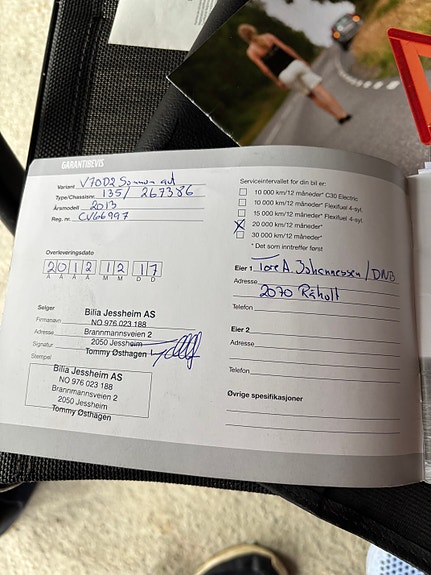 GARANTIBEVIS
Variant V70D2 Summum aut
Type/Chassisnr. 135/ 267386
Årsmodell 2013
Reg. nr. CV66997
Overleveringsdato
2012 12 17
Å Å Å Å M M D D
Selger
Bilia Jessheim AS
Firmanavn NO 976 023 188
Adresse Brannmannsveien 2
2050 Jessheim
Signatur Tommy Østhagen
Stempel
Bilia Jessheim AS
NO 976 023 188
Brannmannsveien 2
2050 Jessheim
Tommy Østhagen
Serviceintervallet for din bil er:
10 000 km/12 måneder* C30 Electric
10 000 km/12 måneder* Flexifuel 4-syl.
15 000 km/12 måneder* Flexifuel 4-syl.
X 20 000 km/12 måneder*
30 000 km/12 måneder*
* Det som inntreffer først
Eier 1 Tore A. Johannessen / DNB
Adresse 2070 Råholt
Telefon
Eier 2
Adresse
Telefon
Øvrige spesifikasjoner